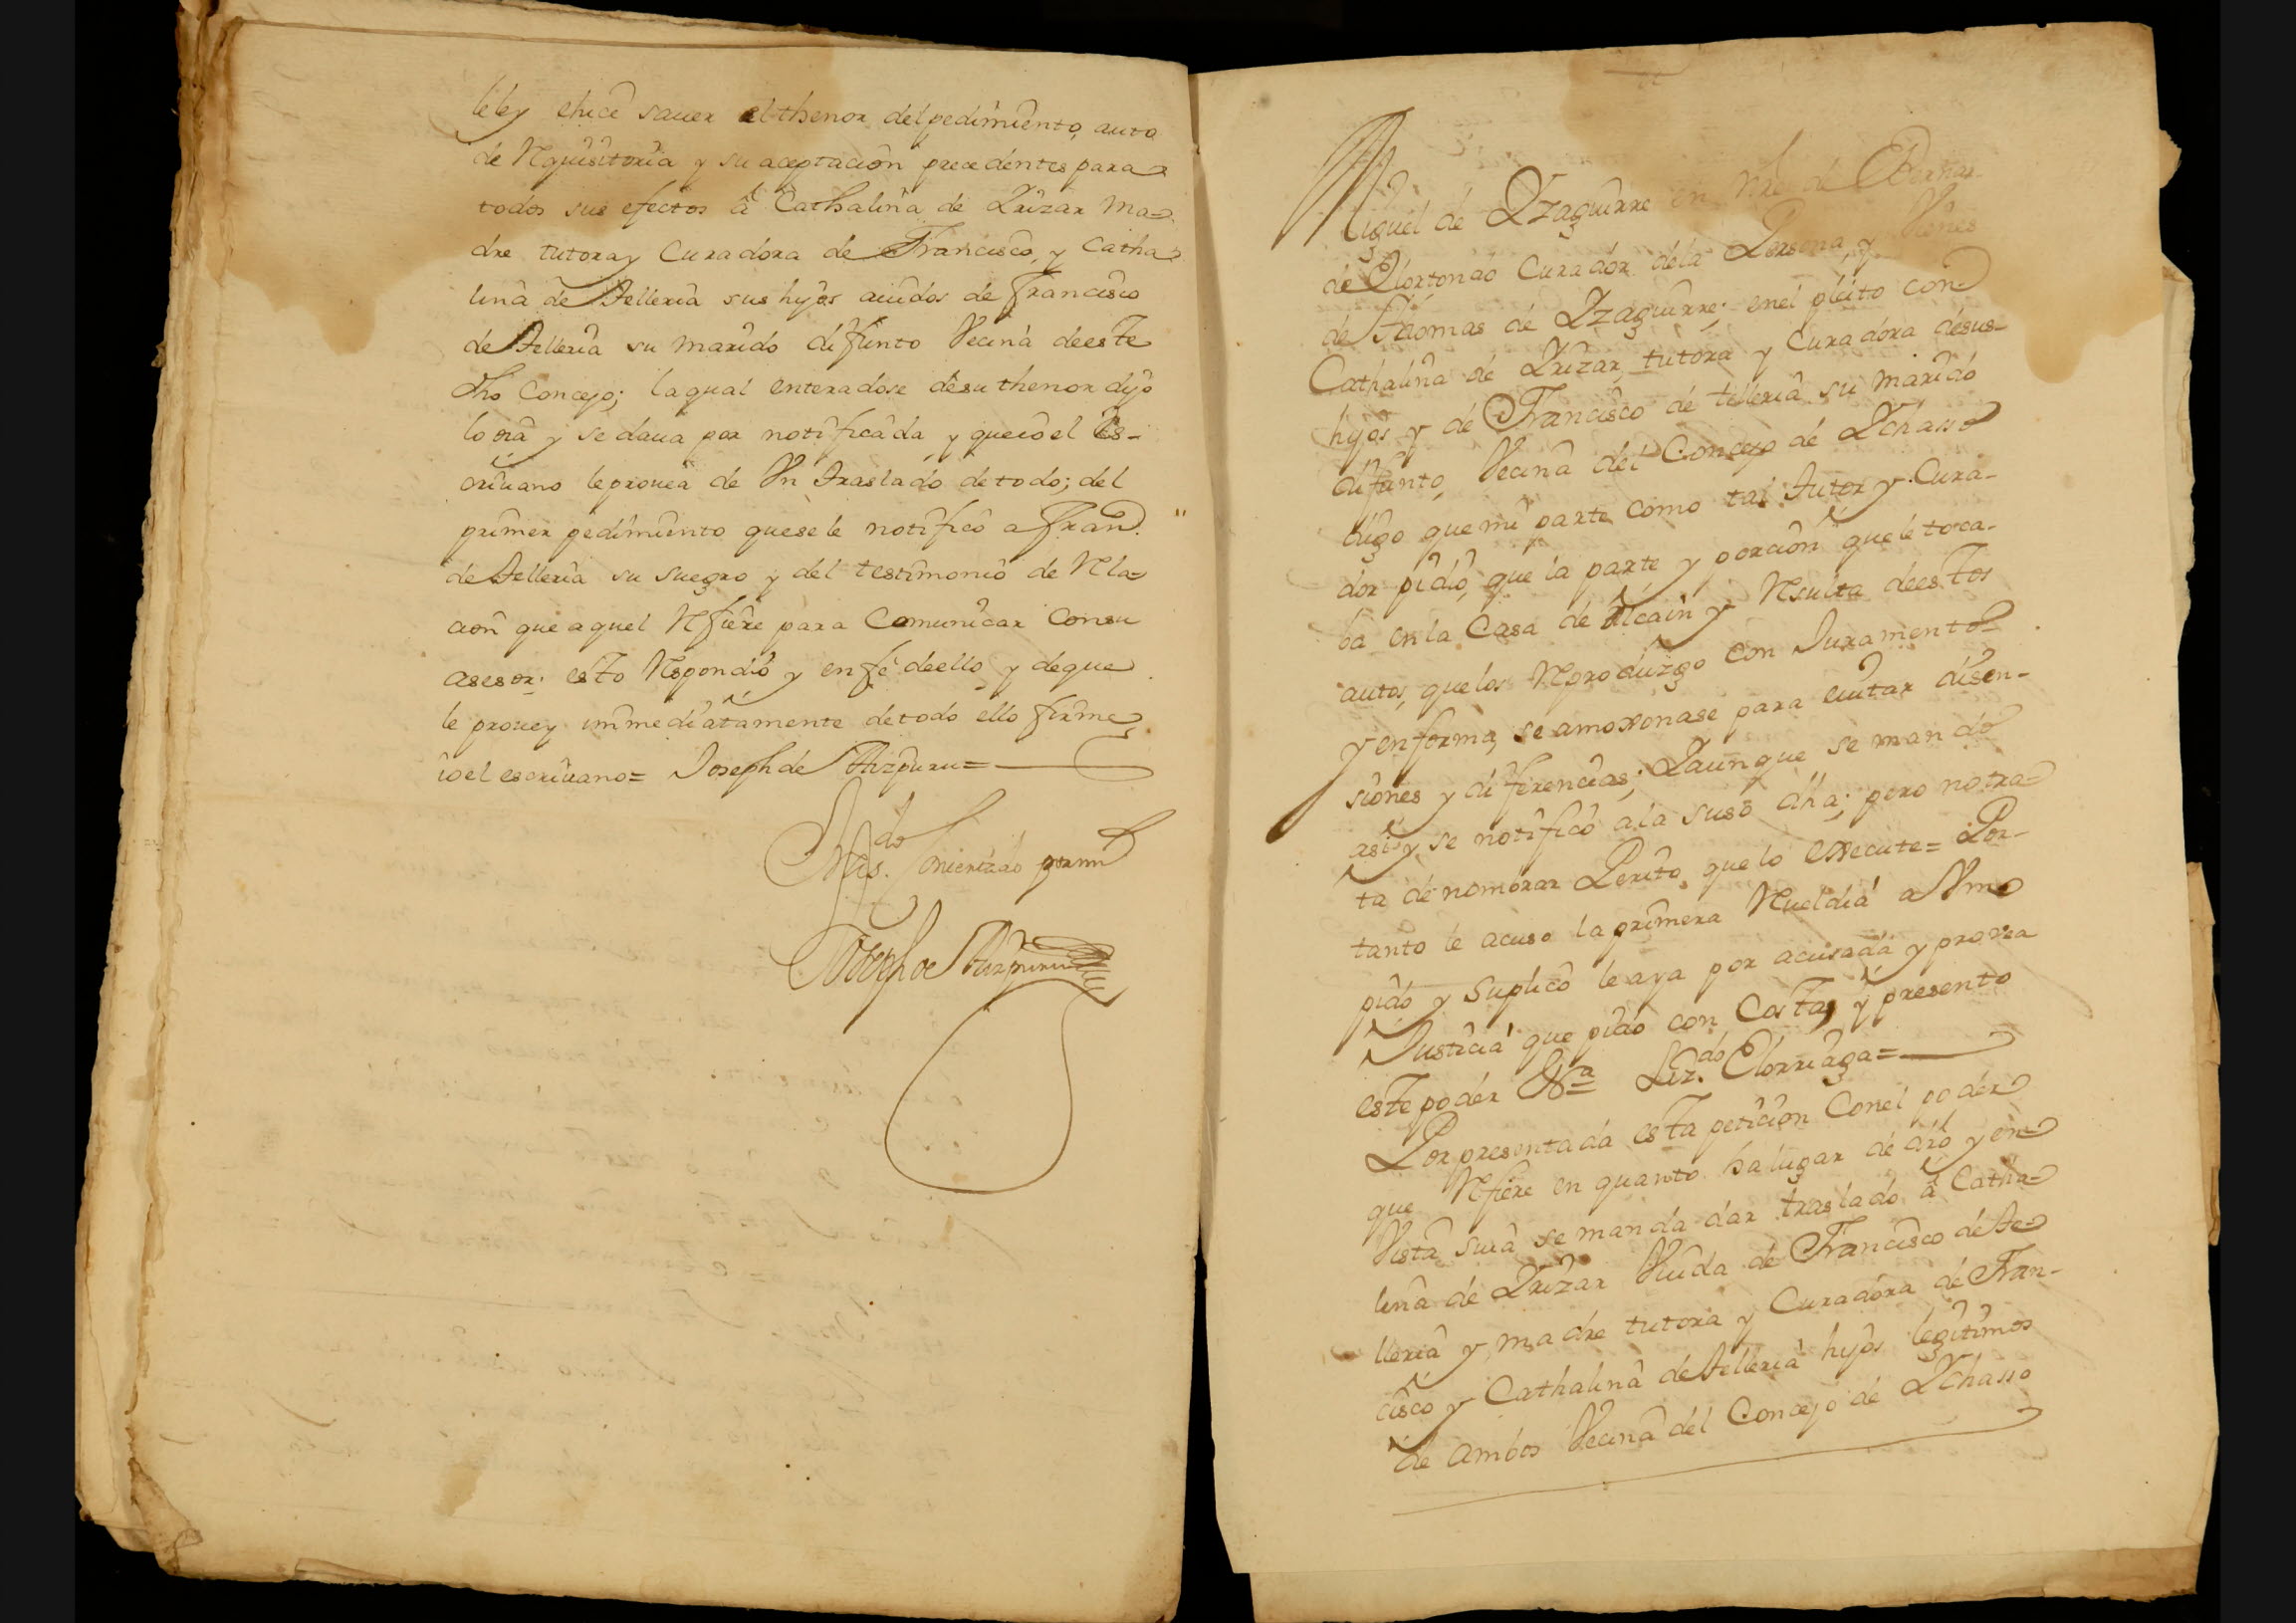 leley ehice sauer el thenor del pedimiento, auto
de Requisitoria y su aceptacion precedentes para
todos sus efectos â Cathalina de Yrizar Ma=
dre tutora y Curadora de Francisco, y Catha
lina de Telleria sus hijos auidos de Francisco
de Telleria su marido difunto Vecina deeste
dho Concejo; laqual enteradose desu thenor dijo
lo oia y se daua por notificada y queio el Es-
criuano le prouea de Vn traslado de todo; del
primer pedimiento quesele notificô a Fran.
de Telleria su suegro y del testimonio de Rela=
cion que aquel Refiere para Comunicar Consu
asesor: esto Respondiô y en feê deello y deque
le prouey immediatamente detodo ello firme
io el escriuano= Joseph de Aizpuru=
do
Joseph de Aizpuru
Miguel de Yzaguirre en Nre de Bernar-
de Elortondo Curador dela Persona, y Vienes
de Thomas de Yzaguirre; enel pleito con
Cathalina de Yrizar, tutora y Curadora desus-
hijos y de Francisco de telleria su marido
difunto, Vecina del Concejo de Ychasso
digo que mi parte como tal Tutor y Cura-
dor pidiô, que la parte y porcion que le toca-
ba en la Casa de Alcain y Resulta deestos
autos, quelos Reproduzgo con Juramento
y en forma, se amoxonase para euitar disen-
siones y diferencias; Yaunque se mandô
asi y se notificô ala suso dha; pero no tra=
ta de nombrar Perito que lo execute= Por-
tanto le acuso la primera Rueldia a Vm
pido y Suplico le aya por acusada y provea
Justicia que pido con Costas, y presento
este poder Va Liz.do Elorriaga=
Por presentada esta peticion Conel poder
que Refiere en quanto ha lugar de dro y en
Vista suia se manda dar traslado â Catha=
lina de Yrizar Viuda de Francisco de Te=
lleria y, madre tutora y Curadora de Fran-
cisco y Cathalina de Telleria hijos legitimos
de ambos Vecina del Concejo de Ychasso